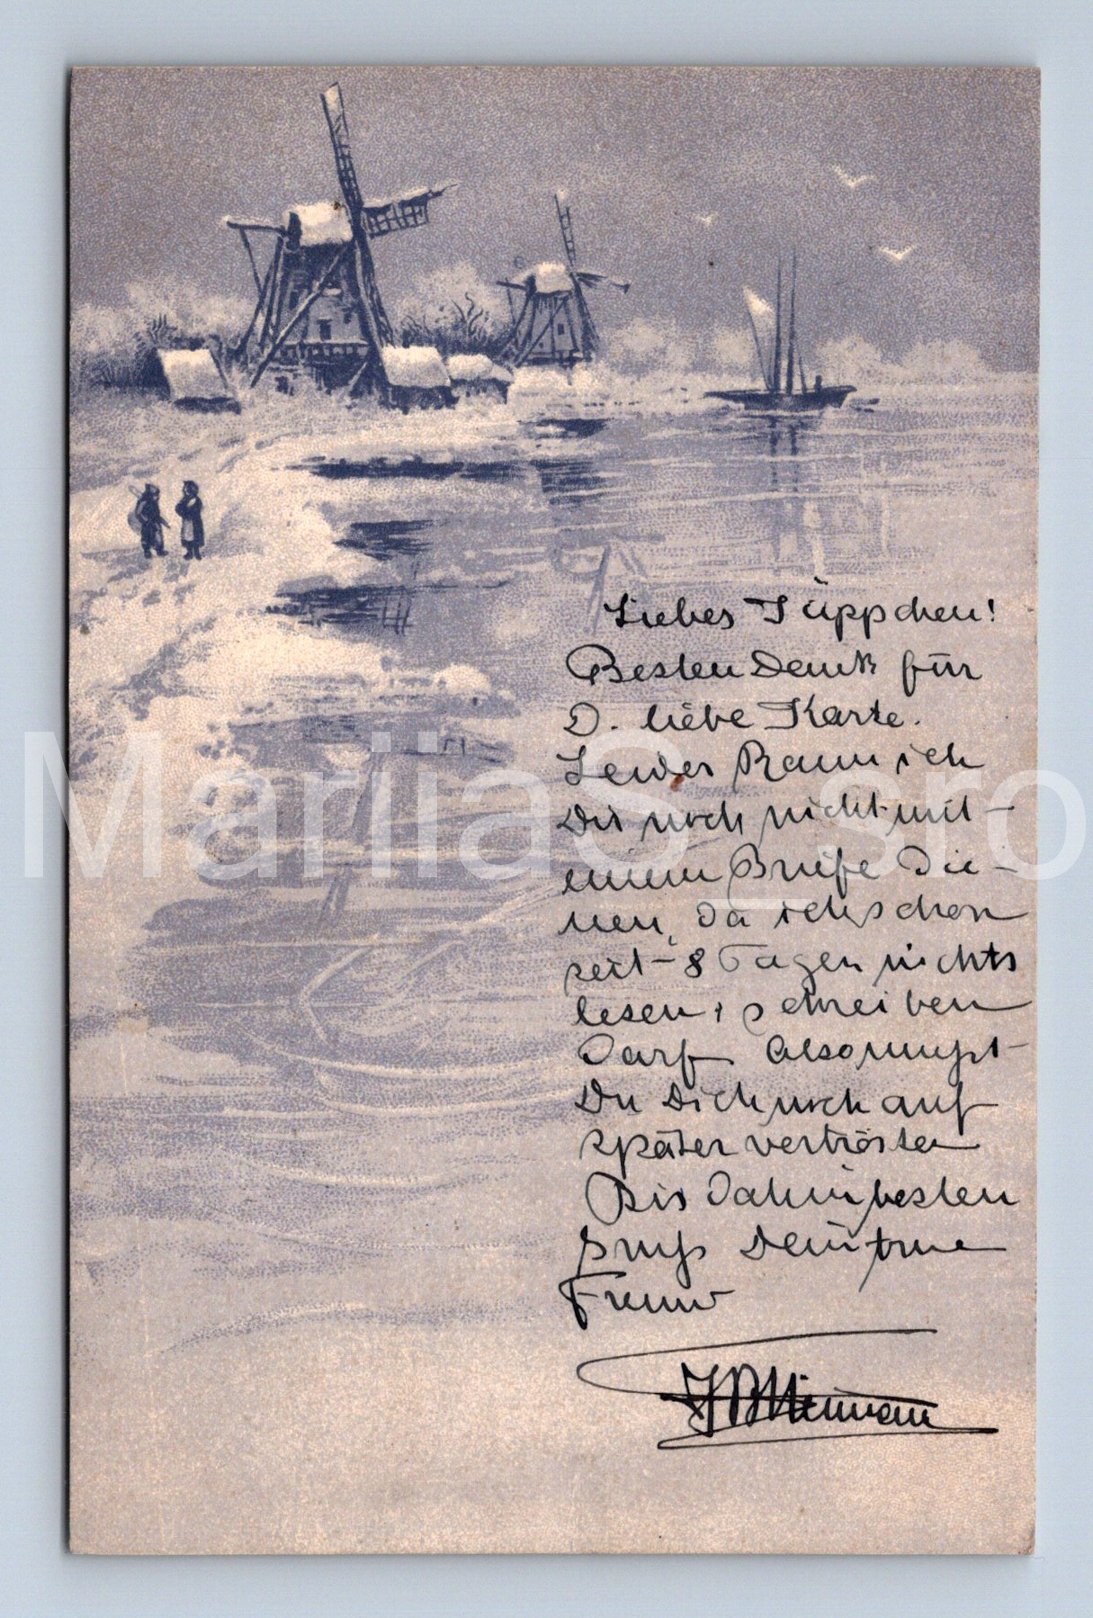 Liebes Püppchen!
Besten Dank für
D. liebe Karte.
Leider kann ich
Dir noch nicht mit
einem Briefe die-
nen, da ich schon
seit 8 Tagen nichts
lesen + schreiben
darf. Also mußt
Du Dich noch auf
später vertrösten
Bis dahin besten
Gruß Dein treuer
Freund
MariiaS_sro